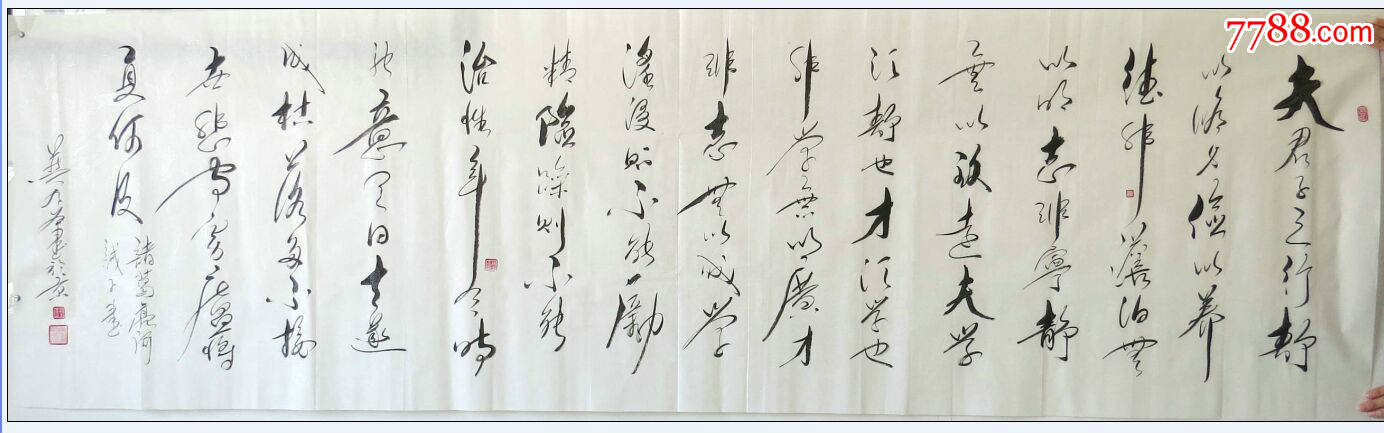 7788.com
夫君子之行静
以修身俭以养
德非澹泊無
以明志非寧静
無以致遠夫学
须静也才须学也
非学無以廣才
非志無以成学
淫漫则不能励
精险躁则不能
治性年与時
驰意与日去遂
成枯落多不接
世悲守穷庐将
复何及
諸葛亮
诫子書
书於京